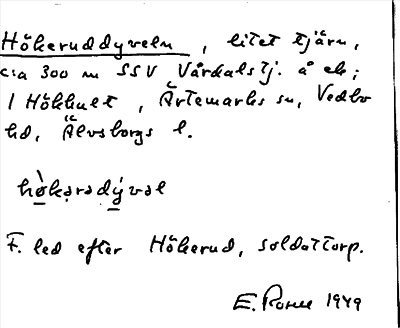 Hökeruddyveln, litet tjärn,
c:a 300 m SSV Vårdalstj. å ek;
1 Hökhult, Ärtemarks sn, Vedbo
hd, Älvsborgs l.
hø̀karadýval
F. led efter Hökerud, soldattorp.
E. Rome 1949